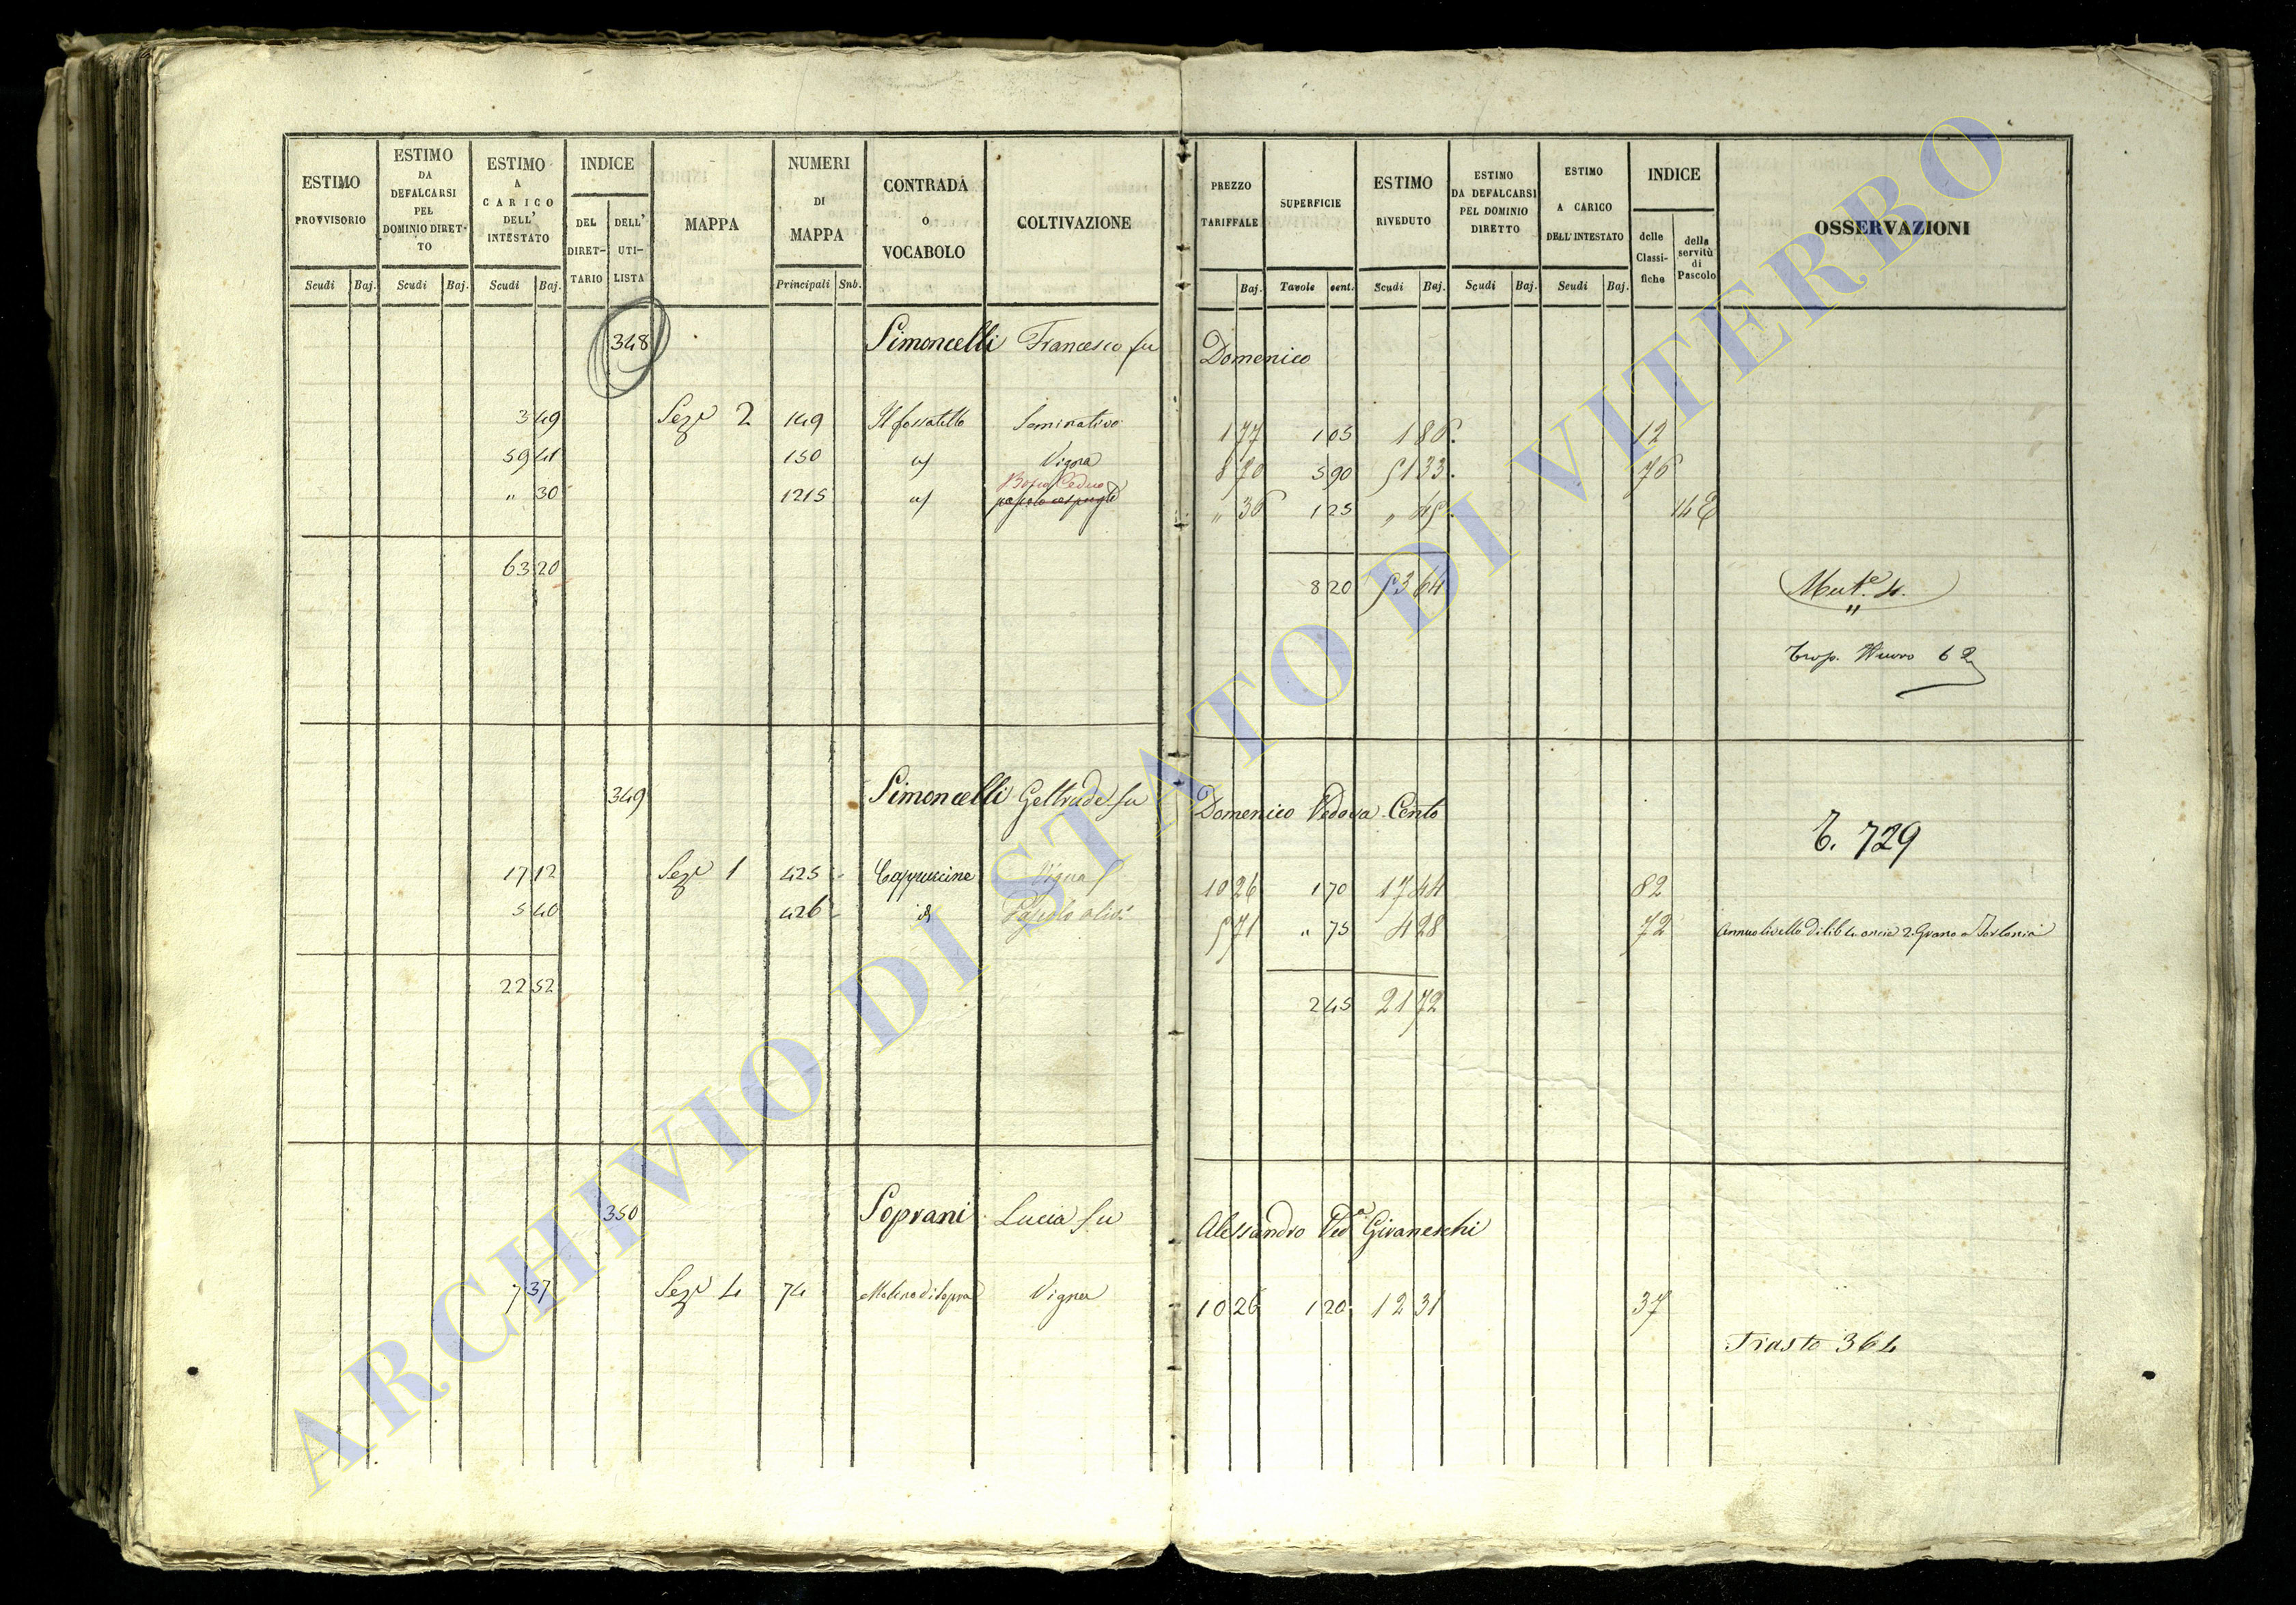 ESTIMO PROVVISORIO
Scudi Baj.
ESTIMO DA DEFALCARSI PEL DOMINIO DIRET-TO
Scudi Baj.
ESTIMO A CARICO DELL' INTESTATO
Scudi Baj.
INDICE
DEL DIRET-TARIO
DELL' UTI-LISTA
MAPPA
NUMERI DI MAPPA
Principali Snb.
CONTRADA O VOCABOLO
COLTIVAZIONE
PREZZO TARIFFALE
Baj.
SUPERFICIE
Tavole cent.
ESTIMO RIVEDUTO
Scudi Baj.
ESTIMO DA DEFALCARSI PEL DOMINIO DIRETTO
Scudi Baj.
ESTIMO A CARICO DELL'INTESTATO
Scudi Baj.
INDICE
delle Classi-fiche
della servitù di Pascolo
OSSERVAZIONI
348 Simoncelli Francesco fu Domenico
3 49 Sezе 2 149 Il fossatello Seminativo 1 77 1 05 1 86 12
59 41 150 Vigna 8 70 5 90 51 33 76
" 30 1215 Bosco Ceduo " 36 1 25 " 45 14
63 20 8 20 53 64
Mut.e 4.
"
62
349 Simoncelli Geltrude fu Domenico Vedova Cento
T. 729
17 12 Seze 1 425 Cappuccine Vigna 10 26 1 70 17 44 82
5 40 426 id Pascolo oliv. 5 71 " 75 4 28 72 Annuo livello di lib 4 oncie 2. Grano a Torlonia
22 52 2 45 21 72
350 Soprani Lucia fu Alessandro Ved.a Givaneschi
7 37 Seze 4 74 Molino di sopra Vigna 10 26 1 20 12 31 37
Trasto 364
ARCHIVIO DI STATO DI VITERBO